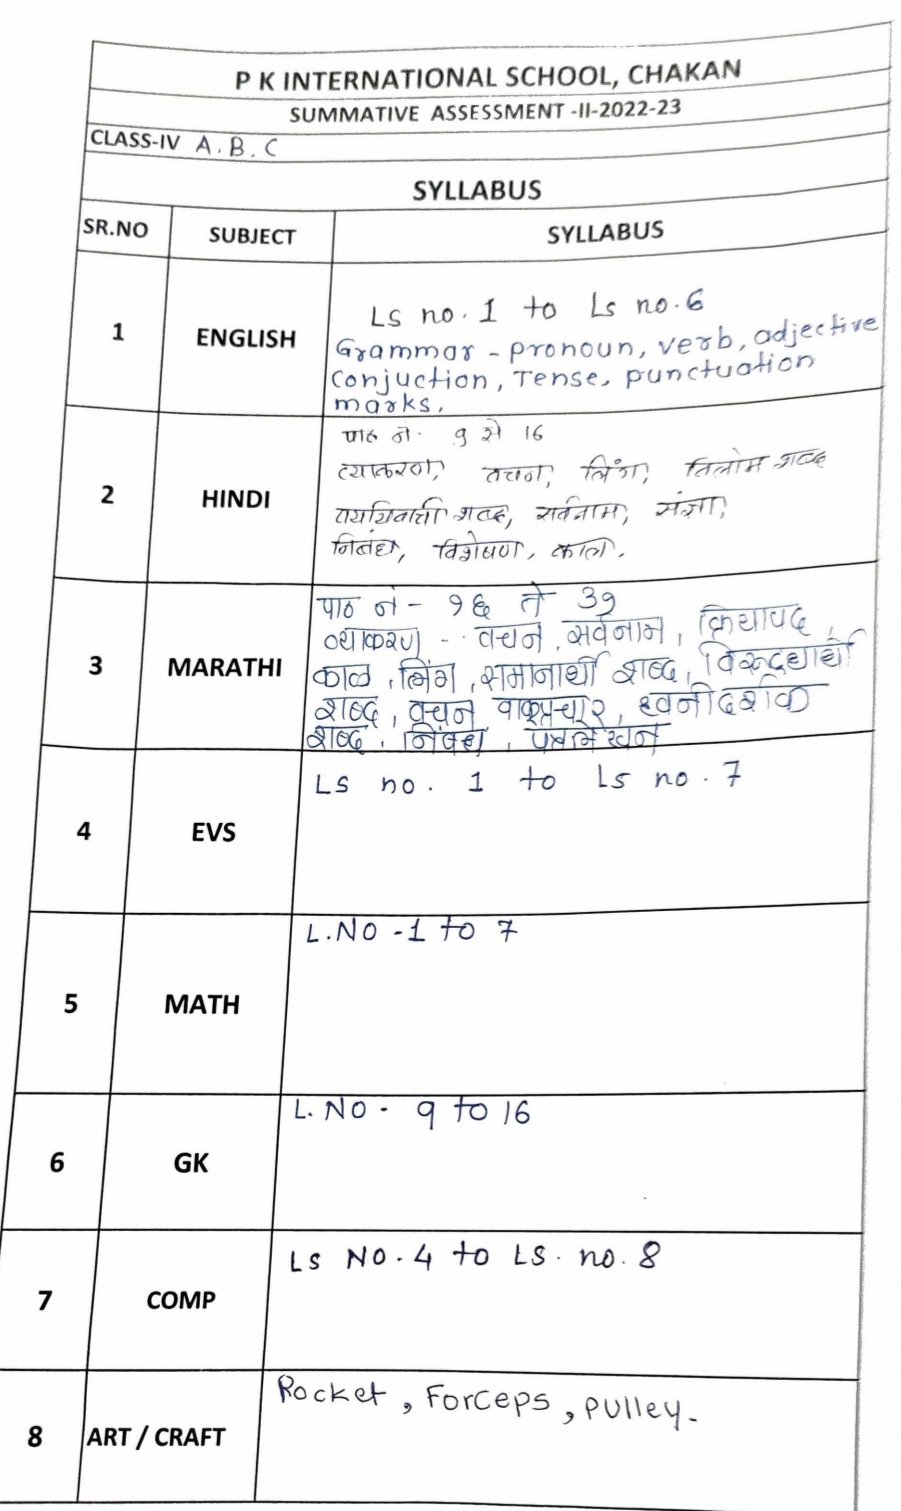 P K INTERNATIONAL SCHOOL, CHAKAN
SUMMATIVE ASSESSMENT -II-2022-23
CLASS-IV A.B.C
SYLLABUS
SR.NO SUBJECT SYLLABUS
1 ENGLISH
Ls no. 1 to Ls no.6
Grammar - pronoun, verb, adjective
Conjuction, Tense, punctuation
marks.
2 HINDI
पाठ नं. 9 से 16
व्याकरण, वचन, लिंग, विलोम शब्द
पर्यायवाची शब्द, सर्वनाम, संज्ञा,
निबंध, विशेषण, काल.
3 MARATHI
पाठ नं - १६ ते ३१
व्याकरण - वचन, सर्वनाम, क्रियापद,
काळ, लिंग, समानार्थी शब्द, विरूद्धार्थी
शब्द, वचन वाक्प्रचार, ध्वनीदर्शक
शब्द, निबंध, पत्रलेखन
4 EVS
Ls no. 1 to Ls no. 7
5 MATH
L.NO -1 to 7
6 GK
L. NO - 9 to 16
7 COMP
Ls NO. 4 to LS. no. 8
8 ART / CRAFT
Rocket, Forceps, pulley.